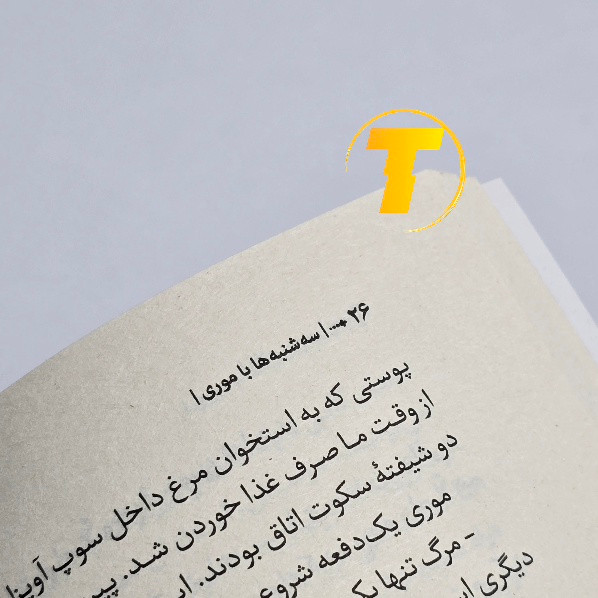 T
۲۶ •••• | سه‌شنبه‌ها با موری |
پوستی که به استخوان مرغ داخل سوپ
از وقت ما صرف غذا خوردن شد.
دو شیفتهٔ سکوت اتاق بودند.
موری یک‌دفعه شروع
- مرگ تنها
دیگری